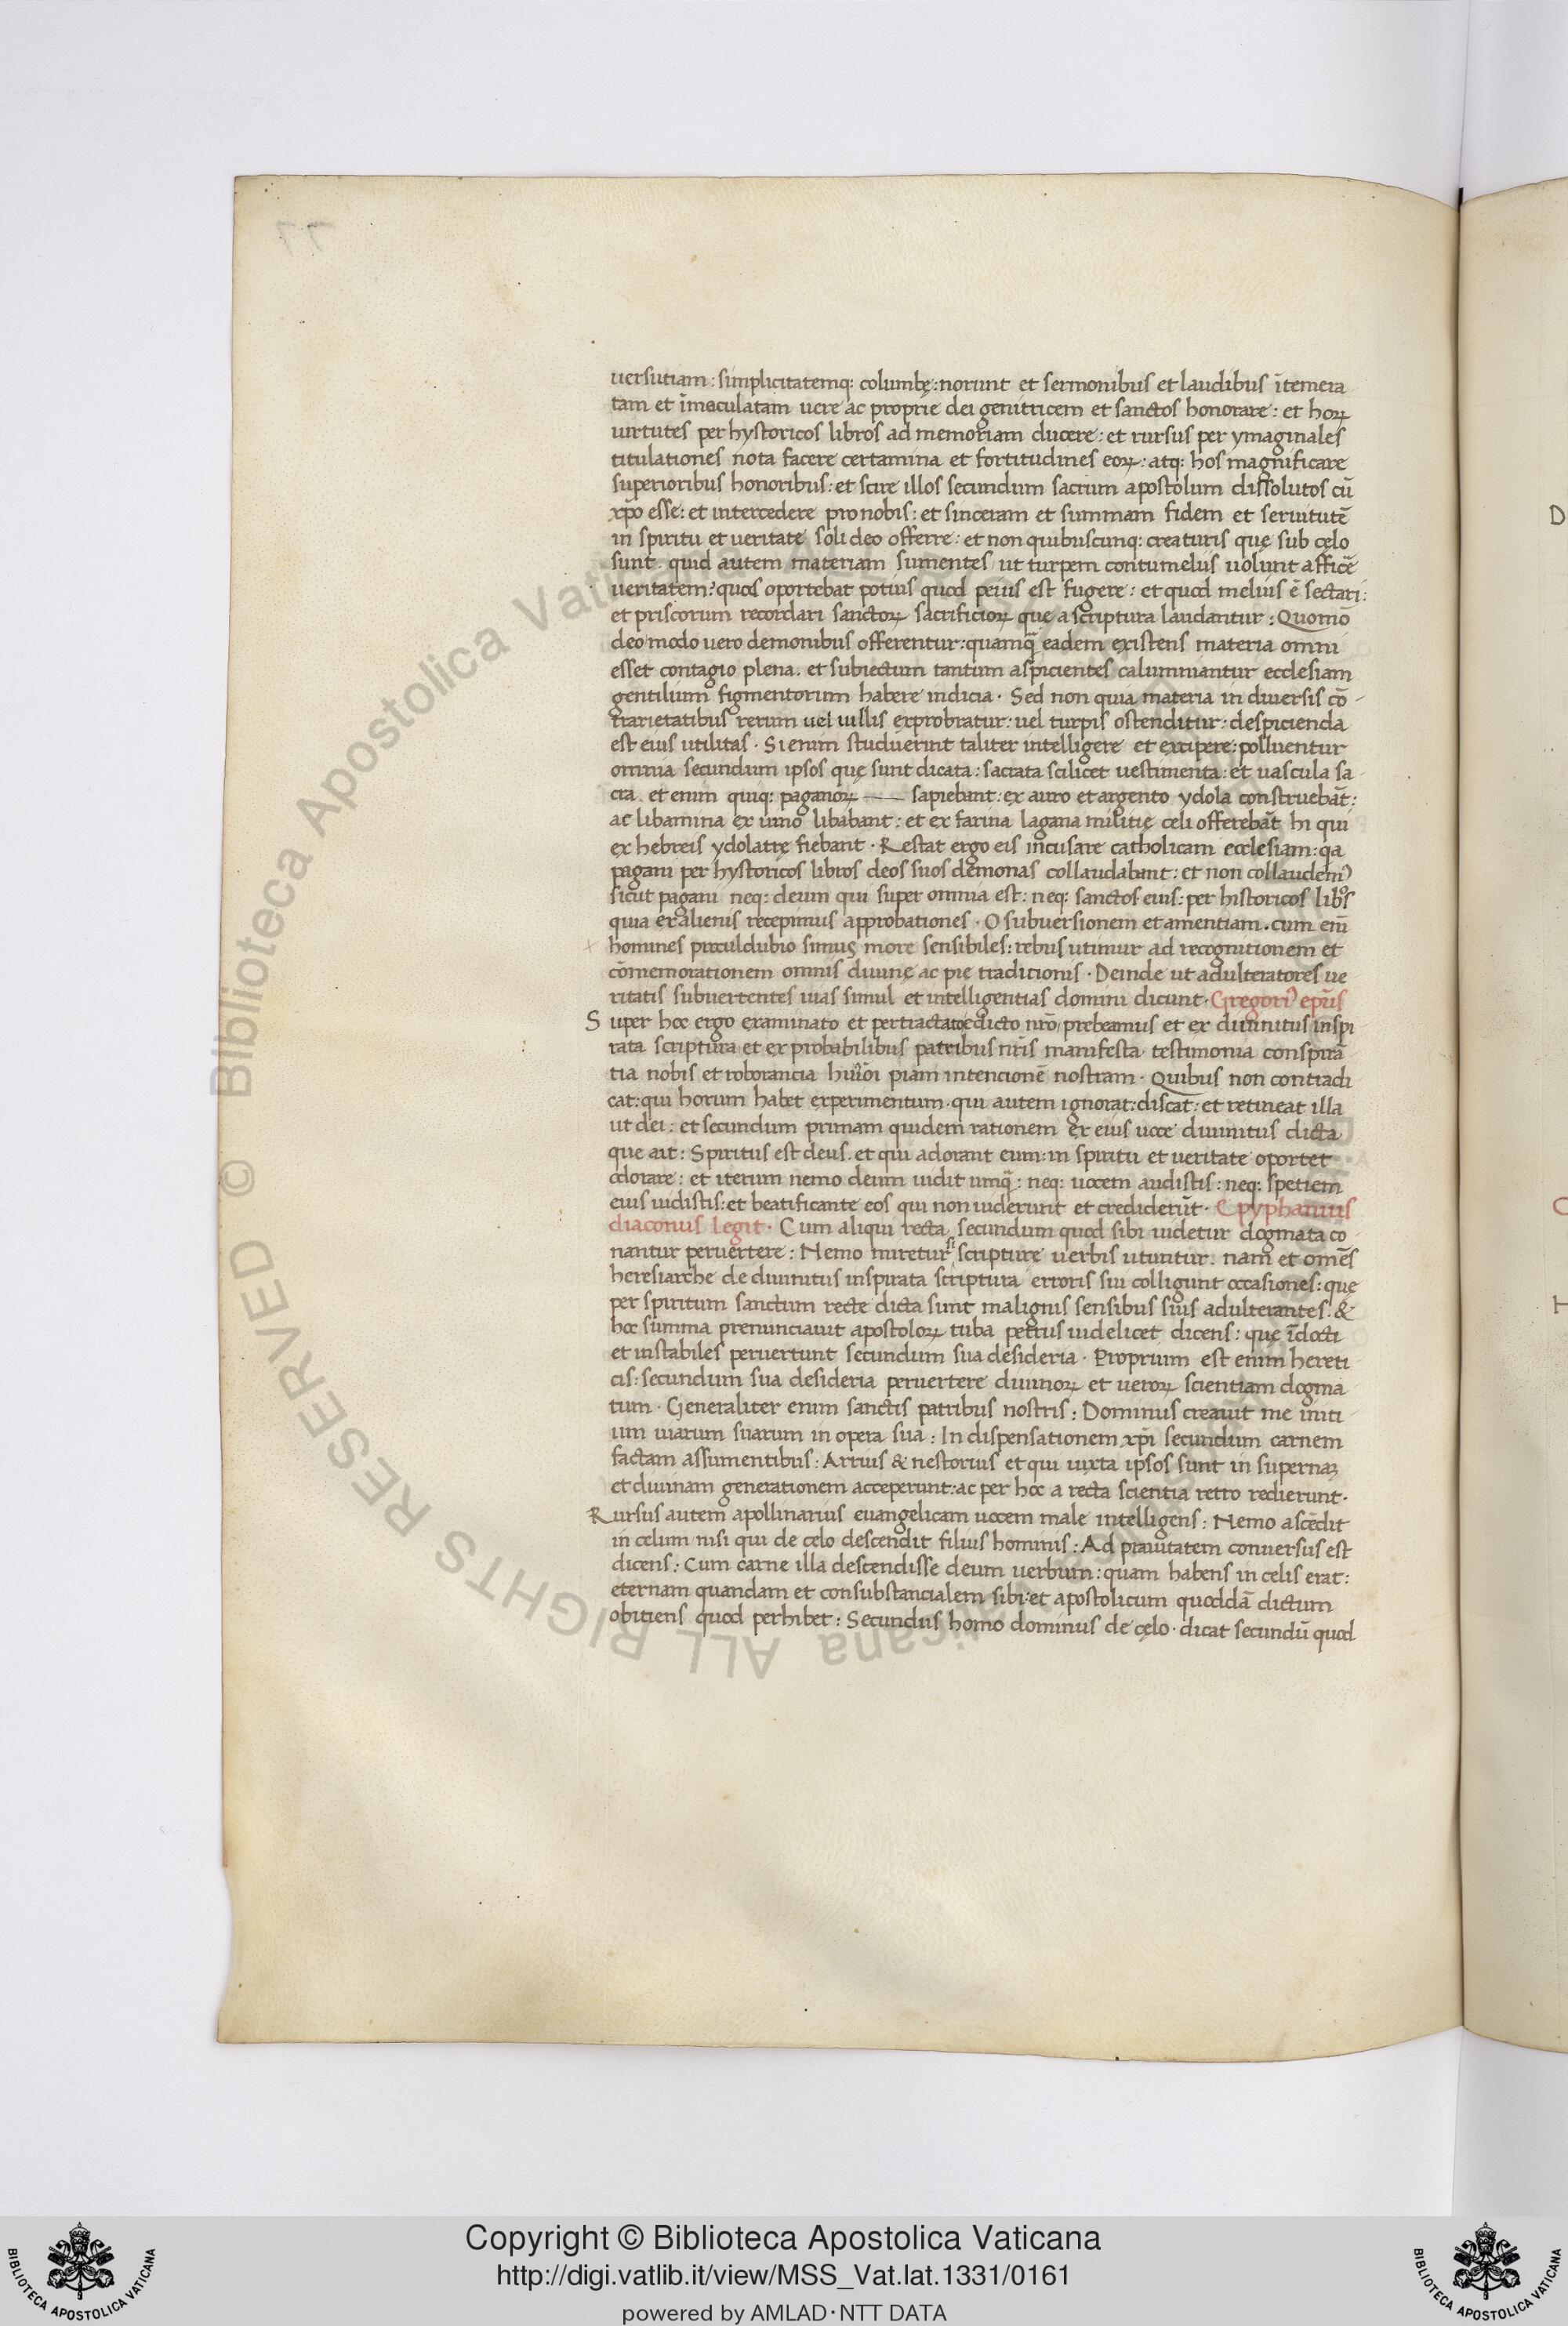 uersutiam: simplicitatemq: columbę: norunt et sermonibus et laudibus ītemera
tam et īmaculatam uere ac proprie dei genitricem et sanctos honorare: et hoꝝ
uirtutes per hystoricos libros ad memoriam ducere: et rursus per ymaginales
titulationes nota facere certamina et fortitudines eoꝝ: atq: hos magnificare
superioribus honoribus: et scire illos secundum sacrum apostolum dissolutos cū
xp̄o esse: et intercedere pro nobis: et sinceram et summam fidem et seruitutē
in spiritu et ueritate soli deo offerre: et non quibuscunq: creaturis quę sub cęlo
sunt. quid autem materiam sumentes ut turpem contumeliis uolunt afficē
ueritatem? quos oportebat potius quod peius est fugere: et quod melius ē sectari:
et priscorum recordari sanctoꝝ sacrificioꝝ quę a scriptura laudantur: Quomō
deo modo uero demonibus offerentur: quamq̄ eadem existens materia omni
esset contagio plena. et subiectum tantum aspicientes calumniantur ecclesiam
gentilium figmentorum habere indicia. Sed non quia materia in diuersis cō-
trarietatibus rerum uel uilis exprobratur: uel turpis ostenditur: despicienda
est eius utilitas. Si enim studuerint taliter intelligere et excipere: polluentur
omnia secundum ipsos quę sunt dicata: sacrata scilicet uestimenta: et uascula sa
cra. et enim quiq: paganoꝝ —— sapiebant: ex auro et argento ydola construebāt:
ac libamina ex uino libabant: et ex farina lagana militię celi offerebāt hi qui
ex hebreis ydolatrę fiebant. Restat ergo eis incusare catholicam ecclesiam: q̄a
pagani per hystoricos libros deos suos demonas collaudabant: et non collaudem᾽
sicut pagani neq: deum qui super omnia est: neq: sanctos eius: per historicos libͦs
quia ex alienis recepimus approbationes. O subuersionem et amentiam. cum eni᷃
homines proculdubio simus more sensibiles: rebus utimur ad recognitionem et
cōmemorationem omnis diuinę ac pię traditionis. Deinde ut adulteratores ue
ritatis subuertentes uias simul et intelligentias domini dicunt. Gregori᾽ ep̄us
Super hoc ergo examinato et pertractato edicto nr̄o prebeamus et ex diuinitus inspi
rata scriptura et ex probabilibus patribus nr̄is manifesta testimonia conspirā
tia nobis et roborancia piam intencionē nostram. Quibus non contradi
cat: qui horum habet experimentum. qui autem ignorat: discat: et retineat illa
ut dei: et secundum primam quidem rationem ex eius uoce diuinitus dicta
que ait: Spiritus est deus. et qui adorant eum: in spiritu et ueritate oportet
adorare: et iterum nemo deum uidit umq̄: neq: uocem audistis: neq: spetiem
eius uidistis: et beatificante eos qui non uiderunt et crediderūt. Epyphanius
diaconus legit. Cum aliqui recta secundum quod sibi uidetur dogmata co
nantur peruertere: Nemo miretur si scripture uerbis utuntur. nam et omēs
heresiarche de diuinitus inspirata scriptura erroris sui colligunt occasiones: quę
per spiritum sanctum recte dicta sunt malignis sensibus suis adulterantes. &
hoc summa prenunciauit apostoloꝝ tuba petrus uidelicet dicens: que īdocti
et instabiles peruertunt secundum sua desideria. Proprium est enim hereti
cis: secundum sua desideria peruertere diuinoꝝ et ueroꝝ scientiam dogma
tum. Generaliter enim sanctis patribus nostris: Dominus creauit me initi
um uiarum suarum in opera sua: In dispensationem xp̄i secundum carnem
factam assumentibus: Arrius & nestorius et qui iuxta ipsos sunt in supernaꝫ
et diuinam generationem acceperunt: ac per hoc a recta scientia retro redierunt.
Rursus autem apollinarius euangelicam uocem male intelligens: Nemo ascēdit
in celum nisi qui de celo descendit filius hominis: Ad prauitatem conuersus est
dicens: Cum carne illa descendisse deum uerbum: quam habens in celis erat:
eternam quandam et consubstancialem sibi: et apostolicum quoddā dictum
obitiens quod perhibet: Secundus homo dominus de cęlo. dicat secundū quod
Copyright © Biblioteca Apostolica Vaticana
http://digi.vatlib.it/view/MSS_Vat.lat.1331/0161
powered by AMLAD·NTT DATA